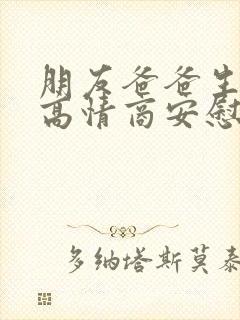 朋友爸爸生
高情商安慰
多纳塔斯莫泰